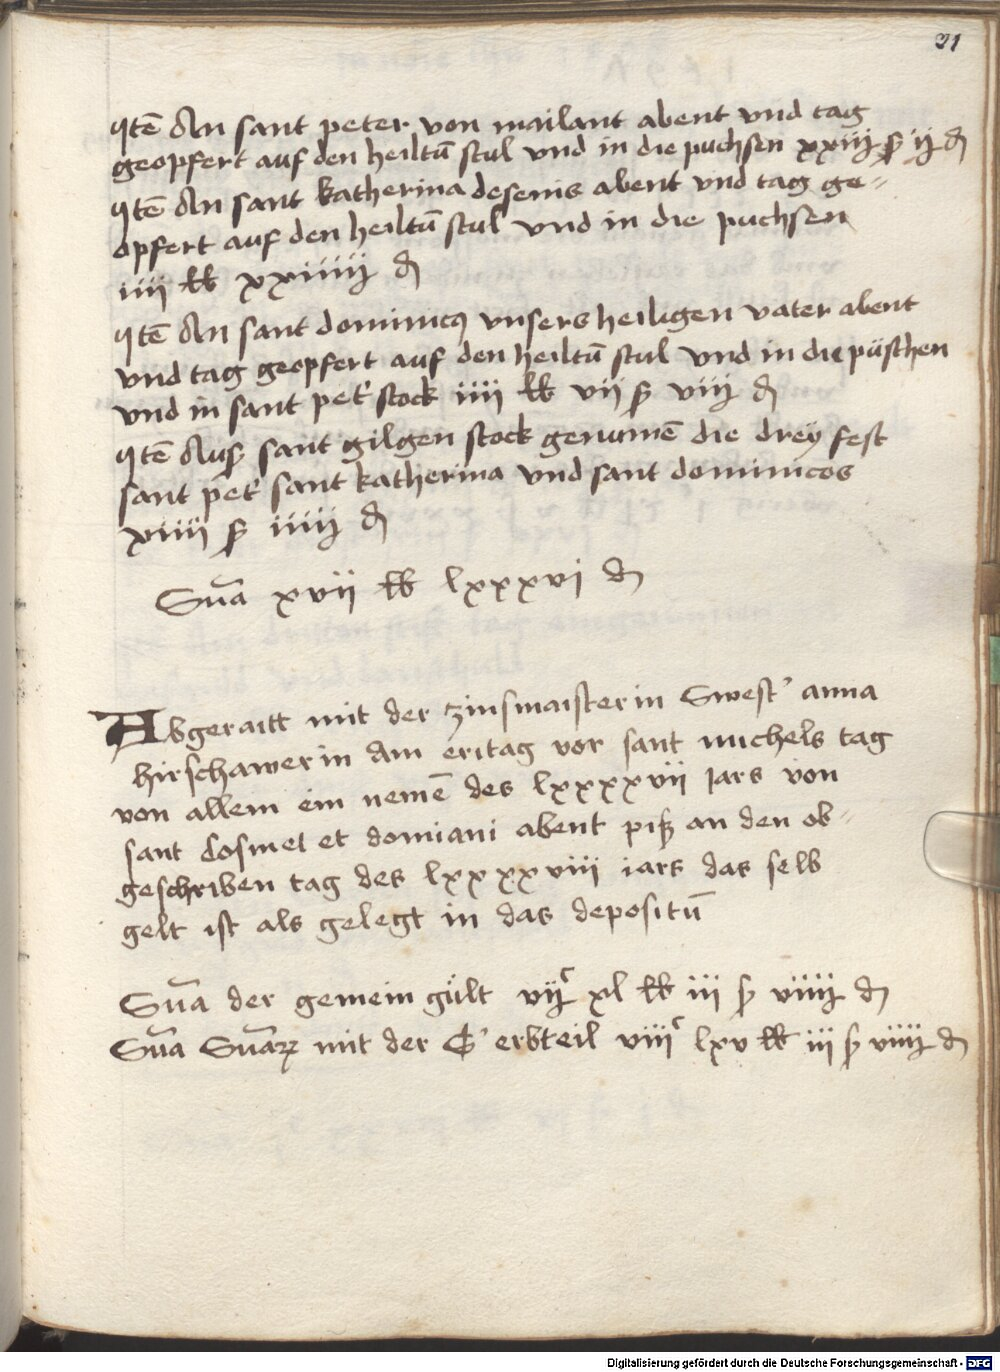 31
Jtē An sant peter von mailant abent vnd tag
geopfert auf den heiltū stul vnd in die puchsen xxiij ß ij ₰
Jtē An sant katherina desenis abent vnd tag ge=
opfert auf den heiltū stul vnd in die puchsen
iiii ℔ xxiiiij ₰
Jtē An sant dominicꝯ vnsers heiligen vater abent
vnd tag geopfert auf den heiltū stul vnd in die püschen
vnd in sant pet' stock iiii ℔ vii ß viij ₰
Jtē Auß sant gilgen stock genumē die drey fest
sant pet' sant katherina vnd sant dominicos
xiiii ß iiiij ₰
Sūa xvii ℔ lxxxvi ₰
Abgeraitt mit der zinsmaisterin Swest' anna
hirschawerin Am eritag vor sant michels tag
von allem ein nemē des lxxxxvii Jars von
sant Cosmet et domiani abent piß an den ob=
geschriben tag des lxxxxviii iars das selb
gelt ist als gelegt in das depositū
Sūa der gemein gült vijᶜ xl ℔ iii ß viiij ₰
Sūa Sūaꝝ mit der erbteil viiiᶜ lxv ℔ iii ß viiij ₰
Digitalisierung gefördert durch die Deutsche Forschungsgemeinschaft - DFG